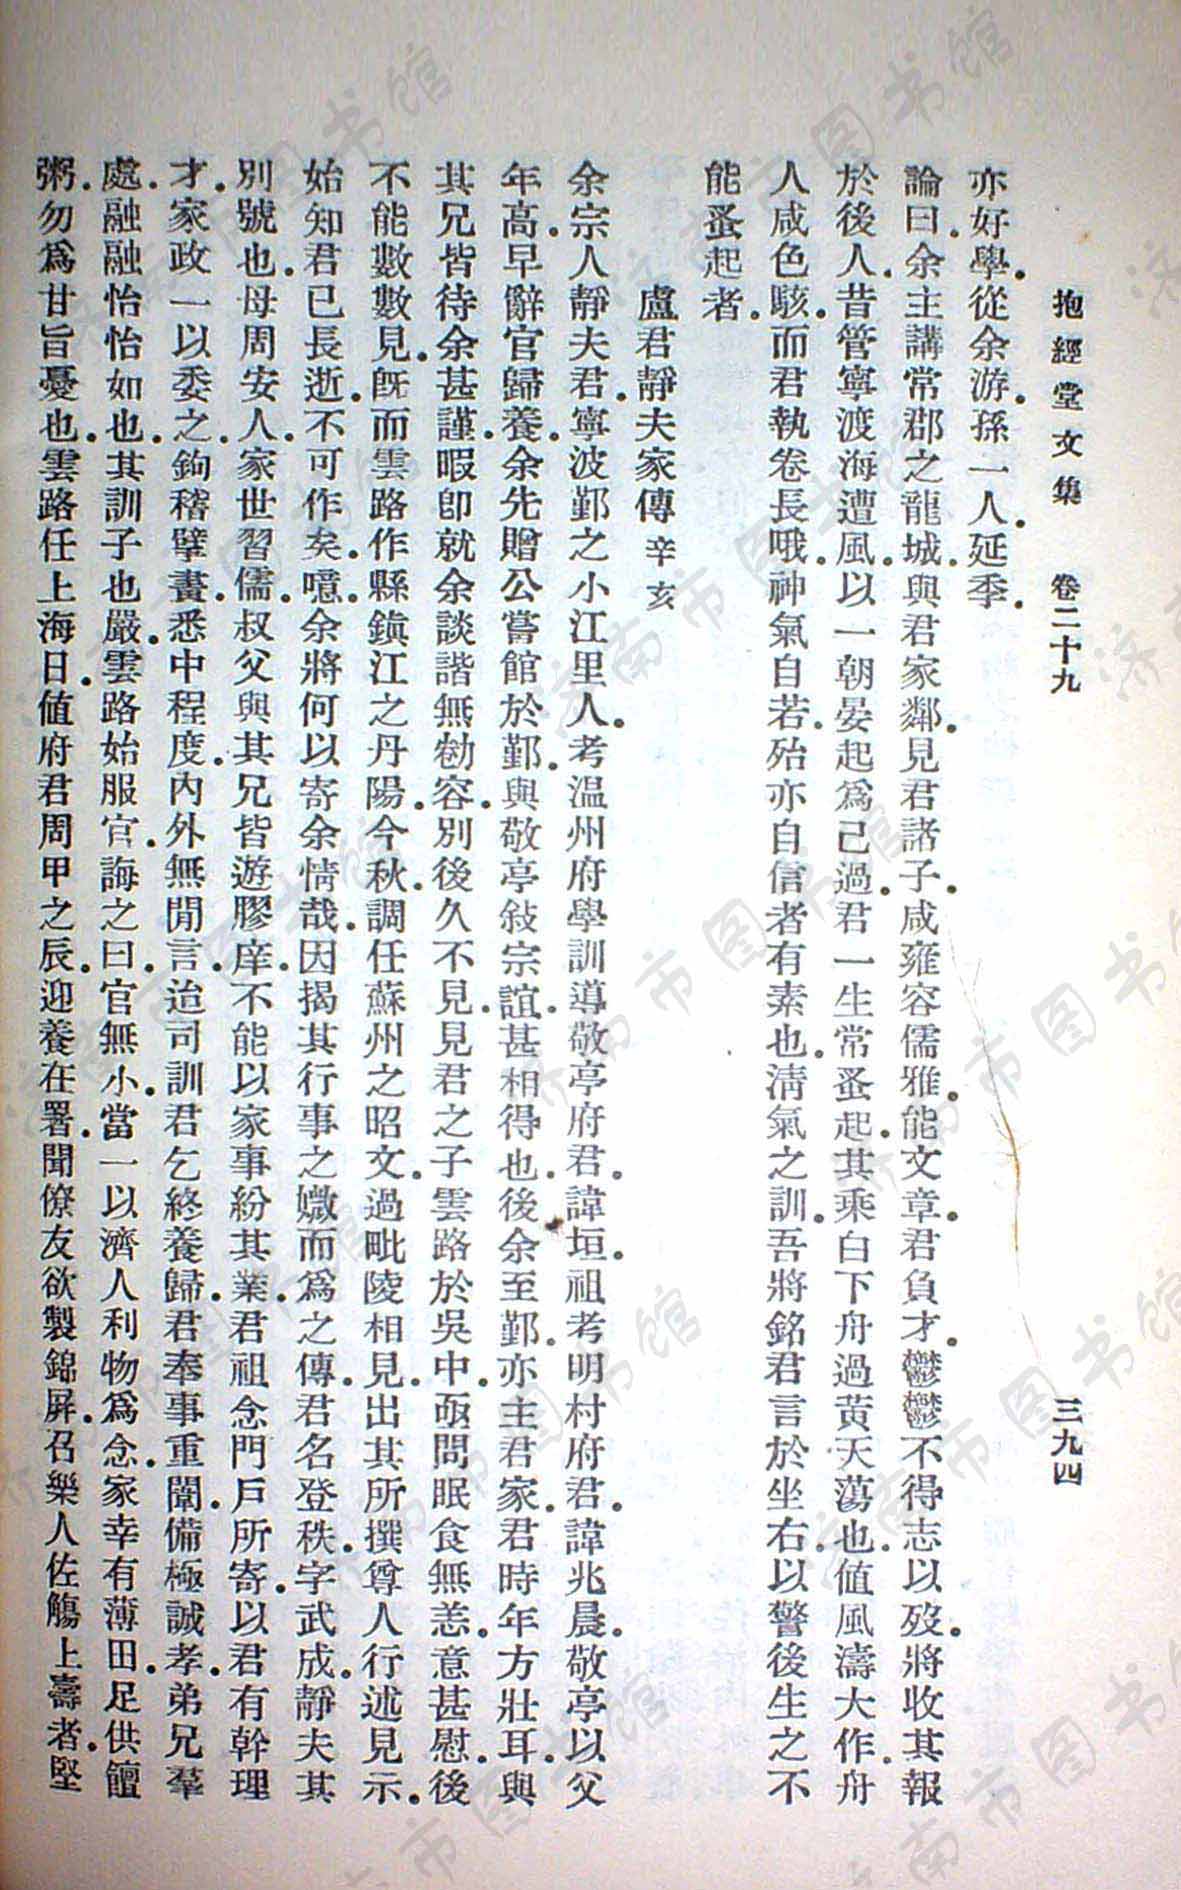 抱經堂文集 卷二十九 三九四
亦好學.從余游.孫一人.延季.
論曰.余主講常郡之龍城.與君家鄰.見君諸子.咸雍容儒雅.能文章.君負才.鬱鬱不得志以歿.將收其報
於後人.昔管寧渡海遭風.以一朝晏起爲己過.君一生常蚤起.其乘白下舟過黃天蕩也.值風濤大作.舟
人咸色駭.而君執卷長哦.神氣自若.殆亦自信者有素也.淸氣之訓.吾將銘君言於坐右.以警後生之不
能蚤起者.
盧君靜夫家傳 辛亥
余宗人靜夫君.寧波鄞之小江里人.考温州府學訓導敬亭府君.諱垣.祖考明村府君.諱兆晨.敬亭以父
年高.早辭官歸養.余先贈公嘗館於鄞.與敬亭敍宗誼.甚相得也.後余至鄞.亦主君家.君時年方壯耳.與
其兄皆待余甚謹.暇卽就余談諧無勌容.別後久不見.見君之子雲路於吳中.亟問眠食無恙.意甚慰.後
不能數數見.旣而雲路作縣鎭江之丹陽.今秋.調任蘇州之昭文.過毗陵相見.出其所撰尊人行述見示.
始知君已長逝.不可作矣.噫.余將何以寄余情哉.因揭其行事之媺而爲之傳.君名登秩.字武成.靜夫其
別號也.母周安人.家世習儒.叔父與其兄皆遊膠庠.不能以家事紛其業.君祖念門戶所寄.以君有幹理
才.家政一以委之.鉤稽擘畫.悉中程度.內外無閒言.迨司訓君乞終養歸.君奉事重闈.備極誠孝.弟兄羣
處.融融怡怡如也.其訓子也嚴.雲路始服官.誨之曰.官無小.當一以濟人利物爲念.家幸有薄田.足供饘
粥.勿爲甘旨憂也.雲路任上海日.値府君周甲之辰.迎養在署.聞僚友欲製錦屛.召樂人佐觴上壽者.堅